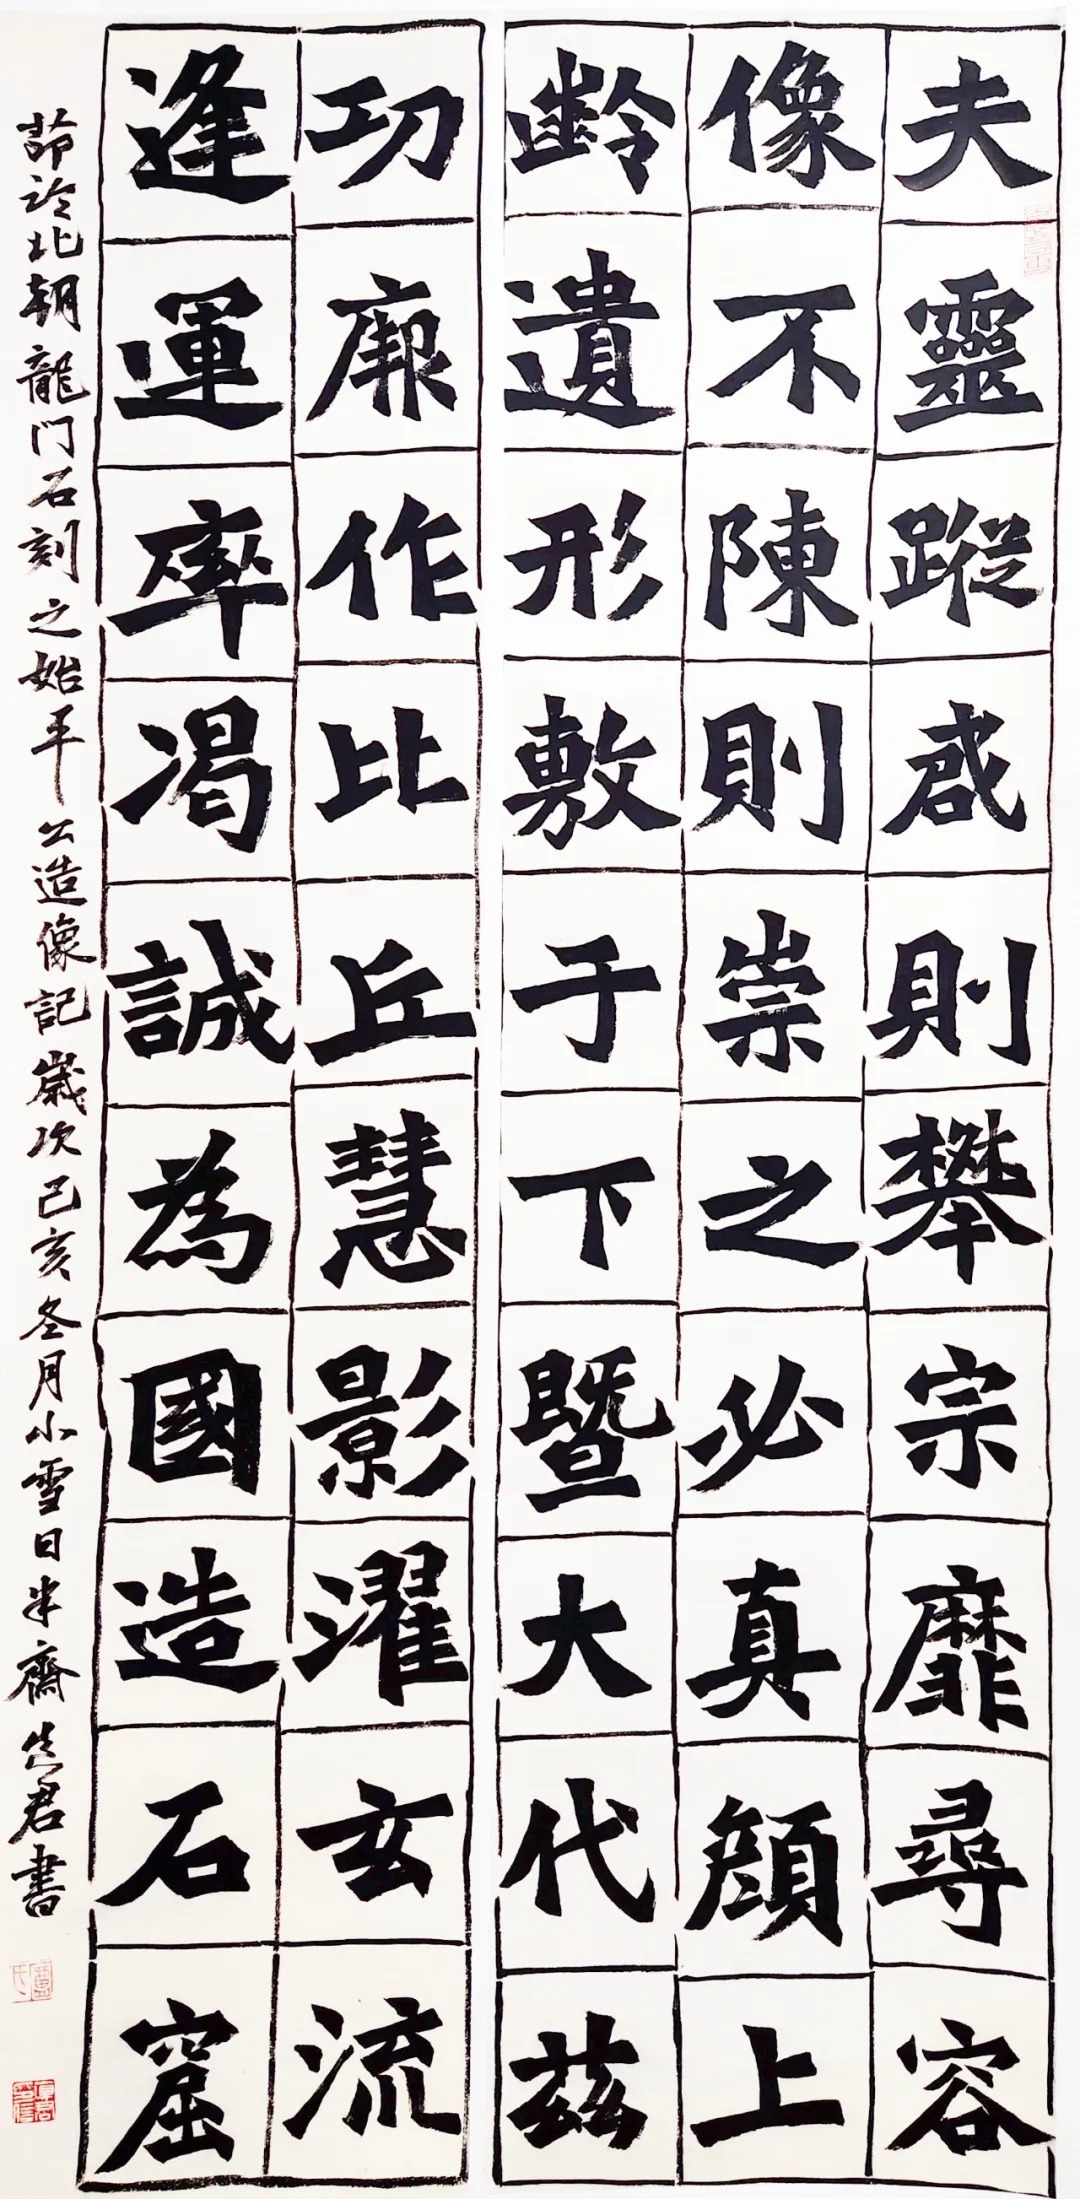 夫靈蹤則攀宗靡尋容
像不陳則崇之必真顏上
齡遺形敷于下暨大代茲
功厥作比丘慧影濯玄流
逢運率渴誠為國造石窟
莭临北朝龍门石刻之始平公造像記歲次己亥冬月小雪日半齋君書